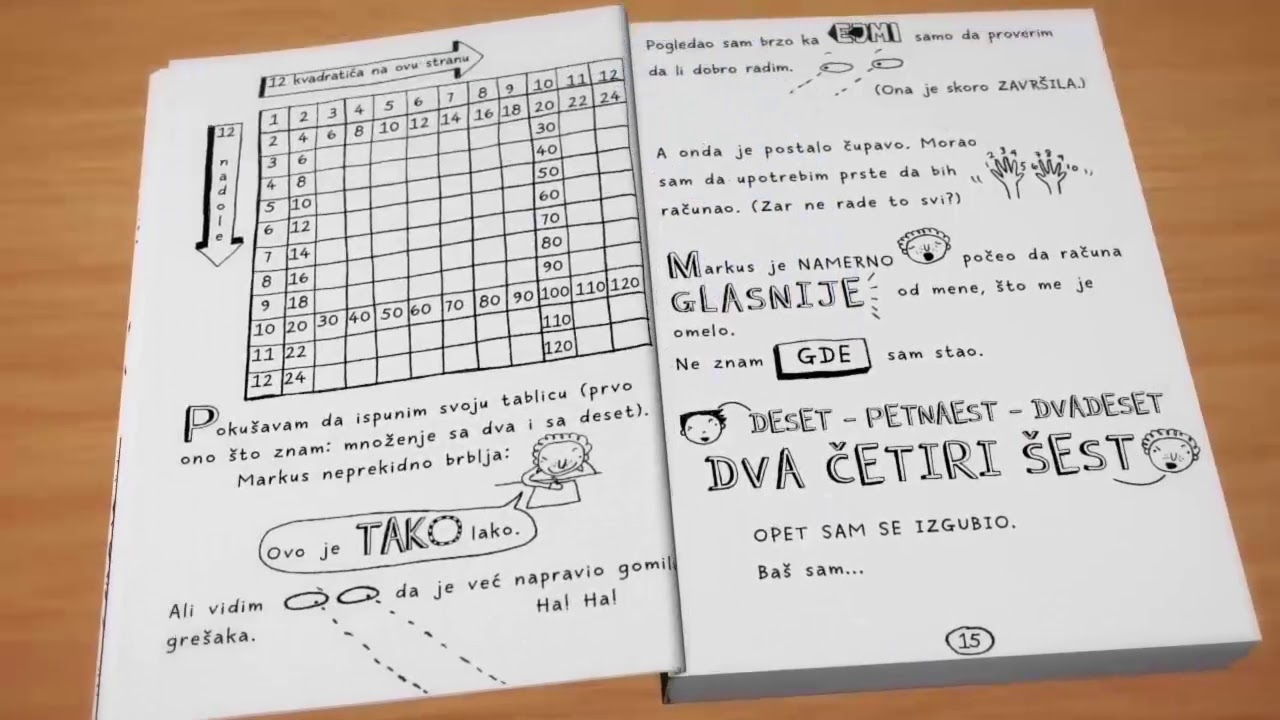 12 kvadratića na ovu stranu
12 nadole
1 2 3 4 5 6 7 8 9 10 11 12
2 4 6 8 10 12 14 16 18 20 22 24
3 6 30
4 8 40
5 10 50
6 12 60
7 14 70
8 16 80
9 18 90
10 20 30 40 50 60 70 80 90 100 110 120
11 22 110
12 24 120
Pokušavam da ispunim svoju tablicu (prvo
ono što znam: množenje sa dva i sa deset).
Markus neprekidno brblja:
Ovo je TAKO lako.
Ali vidim da je već napravio gomil
grešaka.
Ha! Ha!
Pogledao sam brzo ka EJMI samo da proverim
da li dobro radim.
(Ona je skoro ZAVRŠILA.)
A onda je postalo čupavo. Morao
sam da upotrebim prste da bih
računao. (Zar ne rade to svi?)
1 2 3 4 5 6 7 8 9 10
Markus je NAMERNO počeo da računa
GLASNIJE od mene, što me je
omelo.
Ne znam GDE sam stao.
DESET - PETNAEST - DVADESET
DVA ČETIRI ŠEST
OPET SAM SE IZGUBIO.
Baš sam...
15